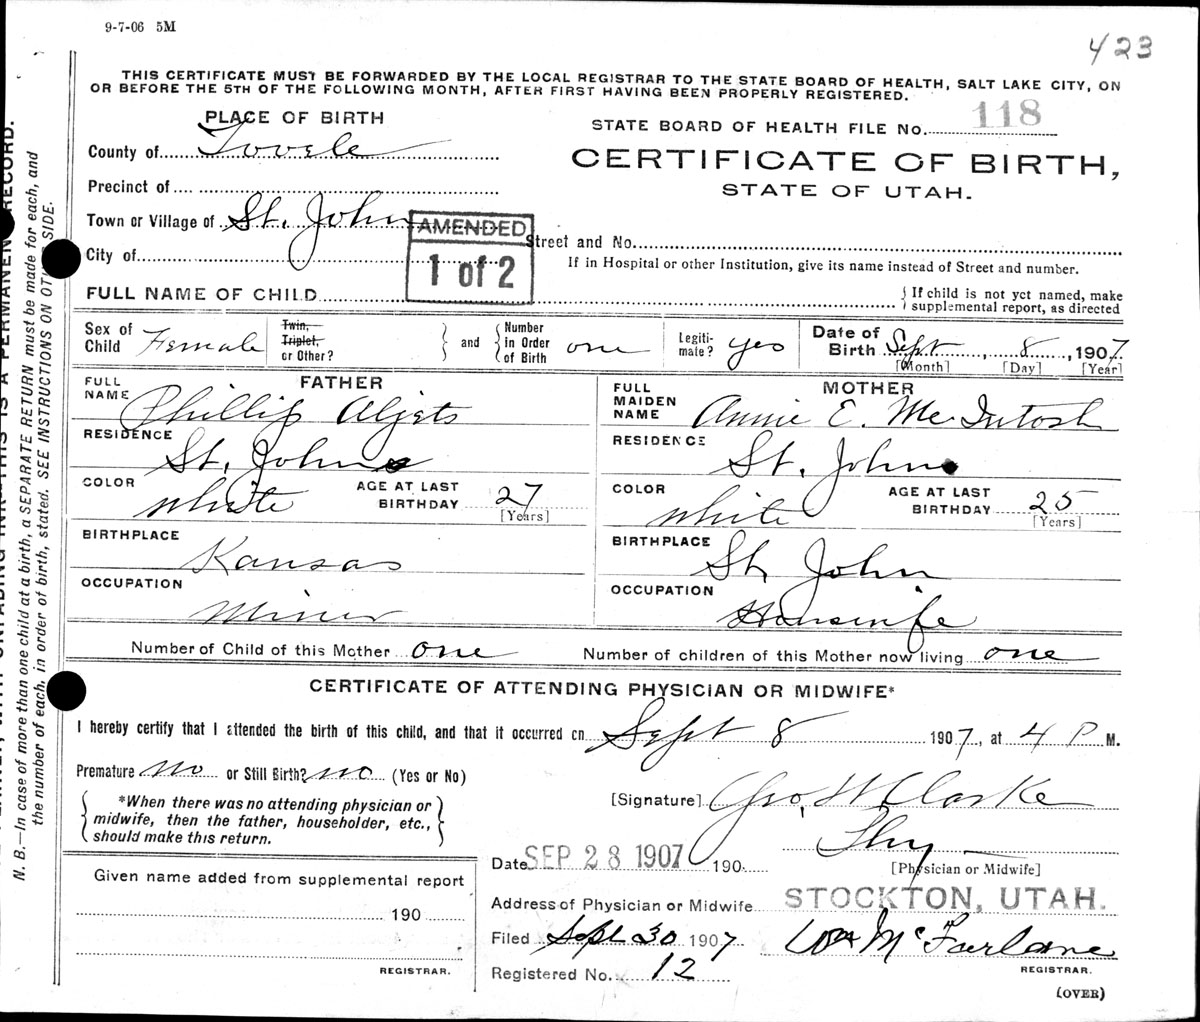 9-7-06 5M
423
THIS CERTIFICATE MUST BE FORWARDED BY THE LOCAL REGISTRAR TO THE STATE BOARD OF HEALTH, SALT LAKE CITY, ON
OR BEFORE THE 5TH OF THE FOLLOWING MONTH, AFTER FIRST HAVING BEEN PROPERLY REGISTERED.
PLACE OF BIRTH
STATE BOARD OF HEALTH FILE No. 118
County of Tooele
CERTIFICATE OF BIRTH,
STATE OF UTAH.
Precinct of
Town or Village of St. John
AMENDED
1 of 2
Street and No.
City of
If in Hospital or other Institution, give its name instead of Street and number.
FULL NAME OF CHILD
If child is not yet named, make
supplemental report, as directed
Sex of Child Female
Twin, Triplet, or Other?
and
Number in Order of Birth one
Legiti-mate? yes
Date of Birth Sept 8, 1907
[Month] [Day] [Year]
FATHER
FULL NAME Phillip Aljets
RESIDENCE St. John
COLOR White
AGE AT LAST BIRTHDAY 27
[Years]
BIRTHPLACE Kansas
OCCUPATION Miner
MOTHER
FULL MAIDEN NAME Annie E. McIntosh
RESIDENCE St. John
COLOR White
AGE AT LAST BIRTHDAY 25
[Years]
BIRTHPLACE St. John
OCCUPATION Housewife
Number of Child of this Mother one
Number of children of this Mother now living one
CERTIFICATE OF ATTENDING PHYSICIAN OR MIDWIFE*
I hereby certify that I attended the birth of this child, and that it occurred on Sept 8 1907, at 4 P M.
Premature no or Still Birth? no (Yes or No)
*When there was no attending physician or
midwife, then the father, householder, etc.,
should make this return.
[Signature] Geo. W Clarke
Phy
[Physician or Midwife]
Date SEP 28 1907 190
Address of Physician or Midwife STOCKTON, UTAH.
Given name added from supplemental report
190
REGISTRAR.
Filed Sept 30 1907
McFarlane
REGISTRAR.
Registered No. 12
(OVER)
N. B.—In case of more than one child at a birth, a SEPARATE RETURN must be made for each, and
the number of each, in order of birth, stated. SEE INSTRUCTIONS ON SIDE.
THIS IS A PERMANENT RECORD.